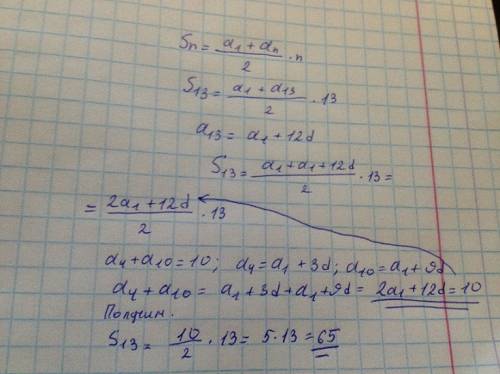 Sn = (a1 + an)/2 · n
S13 = (a1 + a13)/2 · 13
a13 = a1 + 12d
S13 = (a1 + a1 + 12d)/2 · 13 =
= (2a1 + 12d)/2 · 13
a4 + a10 = 10; a4 = a1 + 3d; a10 = a1 + 9d
a4 + a10 = a1 + 3d + a1 + 9d = 2a1 + 12d = 10
Получим.
S13 = 10/2 · 13 = 5 · 13 = 65